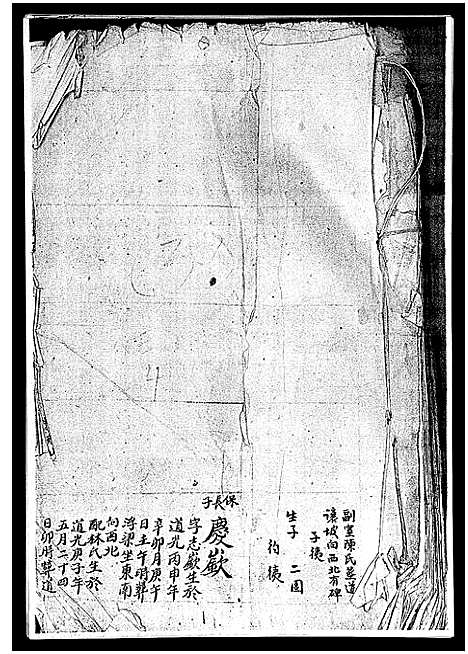 副室陳氏葬道
讓坡向西北有碑
子德
生子 二園
鈞德
保長子
慶嶽
字志嶽生於
道光丙申年
辛卯月庚午
日壬午時葬
浮梁坐東南
向西北
配林氏生於
道光庚子年
五月二十四
日卯時葬道
4